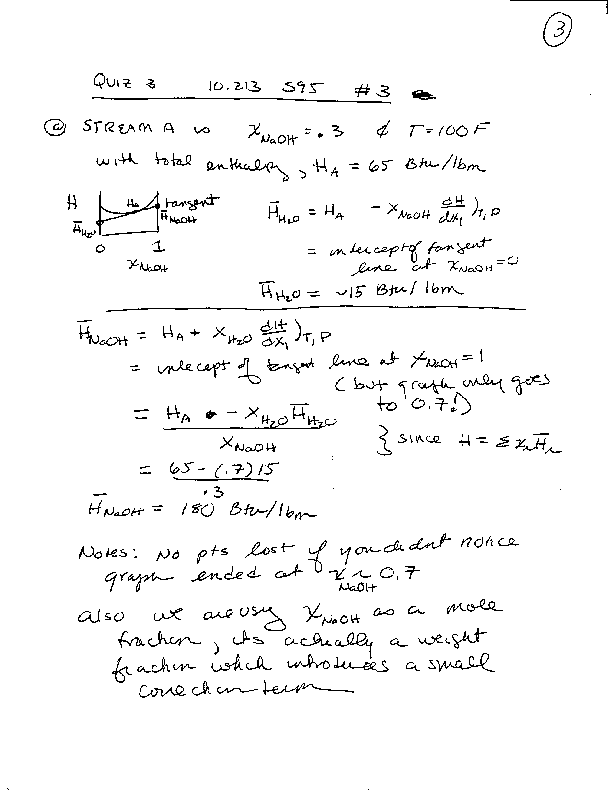 3
QUIZ 3 10.213 S95 #3
(a) STREAM A is x_NaOH = .3 & T = 100 F
with total enthalpy, H_A = 65 Btu/lbm
H H_A tangent
H̄_H2O H̄_NaOH
0 1
x_NaOH
H̄_H2O = H_A - x_NaOH dH/dx_1 )_T,P
= intercept of tangent
line at x_NaOH = 0
H̄_H2O = ~15 Btu/lbm
H̄_NaOH = H_A + x_H2O dH/dx_1 )_T,P
= intecept of tangent line at x_NaOH = 1
(but graph only goes
to 0.7!)
= H_A - x_H2O H̄_H2O
x_NaOH
} since H = Σ x_i H̄_i
= 65 - (.7) 15
.3
H̄_NaOH = 180 Btu/lbm
Notes: No pts lost if you didnt notice
graph ended at x_NaOH ~ 0.7
also we are using x_NaOH as a mole
fraction, its actually a weight
fraction which introduces a small
correction term